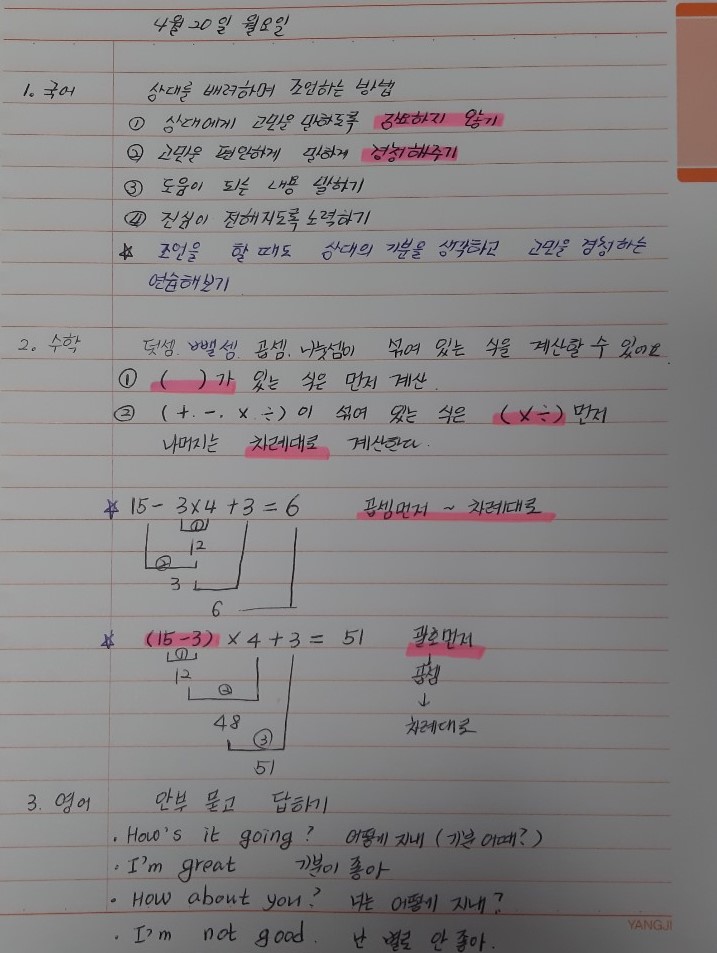 4월 20일 월요일
1. 국어 상대를 배려하며 조언하는 방법
① 상대에게 고민을 말하도록 강요하지 않기
② 고민을 편안하게 말하게 경청해주기
③ 도움이 되는 내용 말하기
④ 진심이 전해지도록 노력하기
☆ 조언을 할 때도 상대의 기분을 생각하고 고민을 경청하는
연습해보기
2. 수학 덧셈, 뺄셈, 곱셈, 나눗셈이 섞여 있는 식을 계산할 수 있어요
① ( )가 있는 식은 먼저 계산.
② (+. -. × ÷)이 섞여 있는 식은 (×÷)먼저
나머지는 차례대로 계산한다.
☆ 15 - 3×4 + 3 = 6 곱셈먼저 ~ 차례대로
①
12
②
3
6
☆ (15-3) × 4 + 3 = 51 괄호먼저
①
12 곱셈
②
↓
48 차례대로
③
51
3. 영어 안부 묻고 답하기
· How's it going? 어떻게 지내 (기분 어때?)
· I'm great 기분이 좋아
· How about you? 너는 어떻게 지내?
· I'm not good. 난 별로 안 좋아.
YANGJI